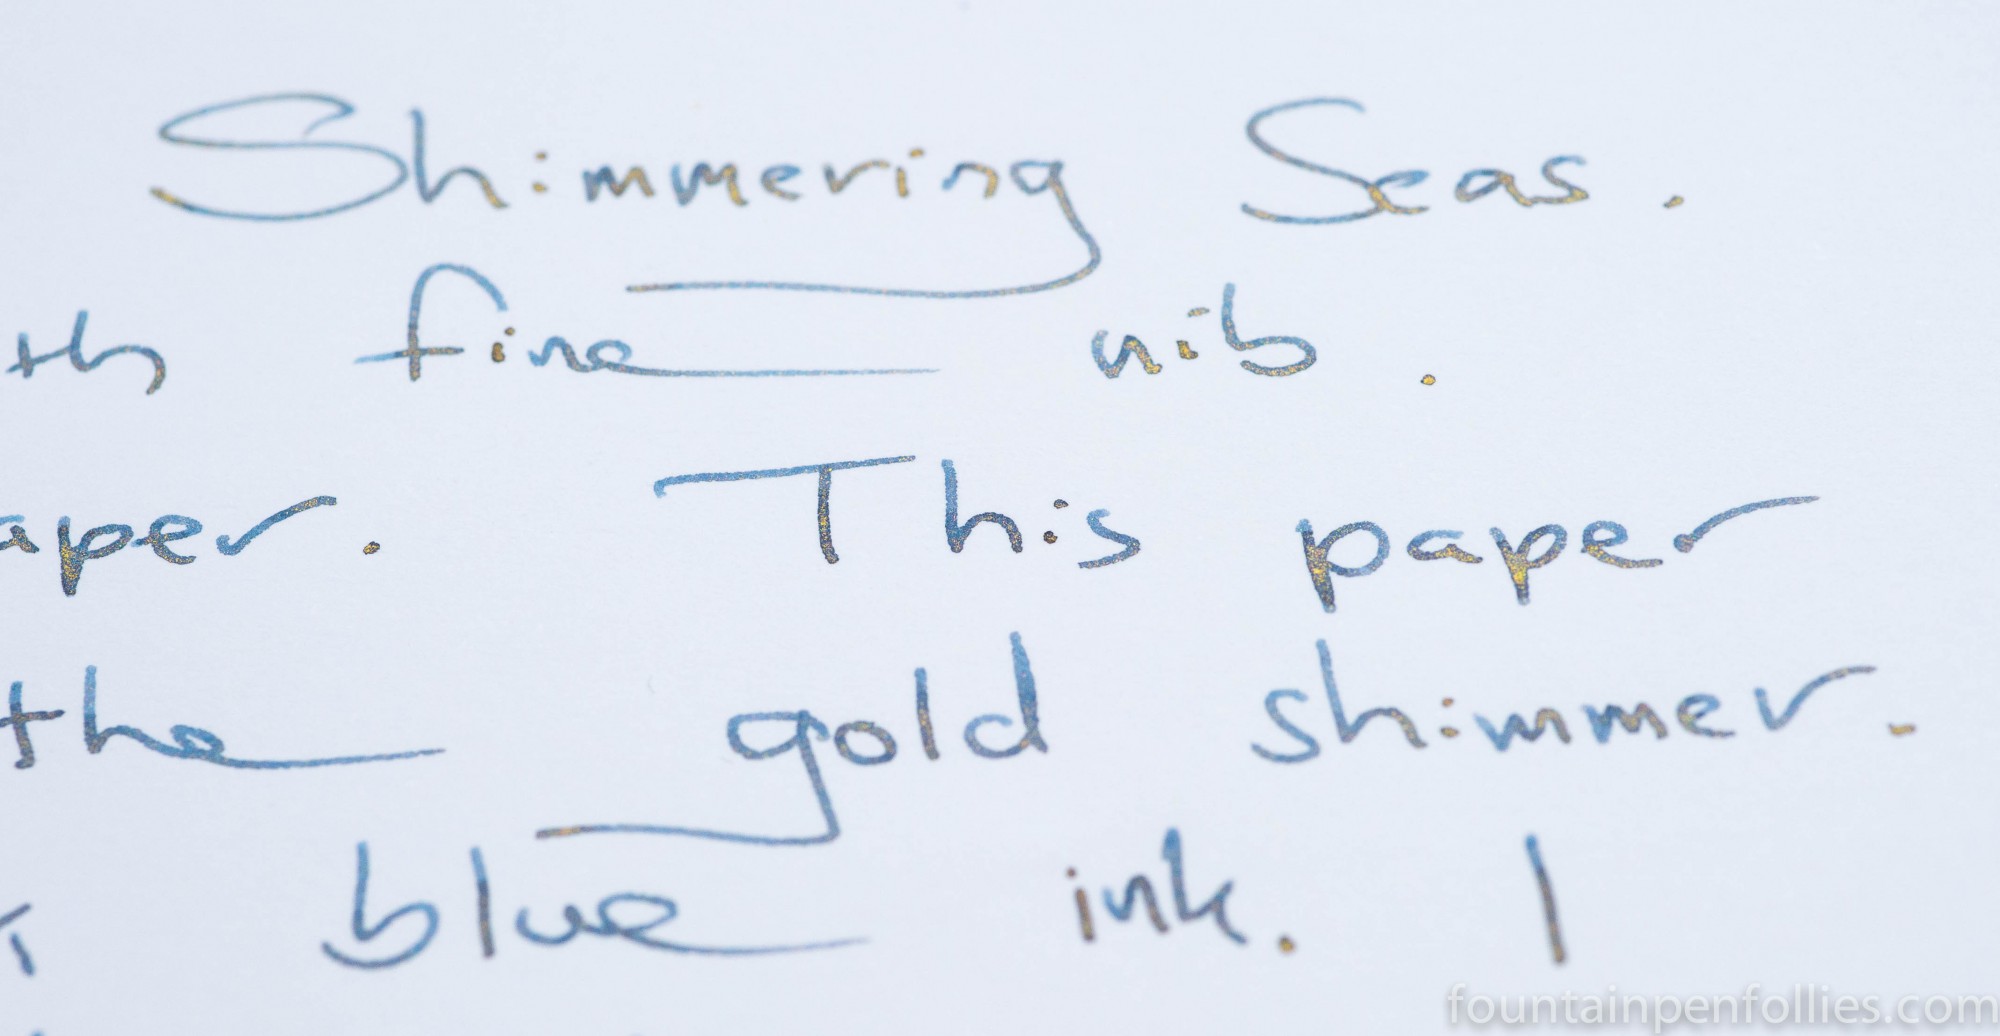 Shimmering Seas.
th fine nib.
aper. This paper
the gold shimmer.
blue ink. I
fountainpenfollies.com